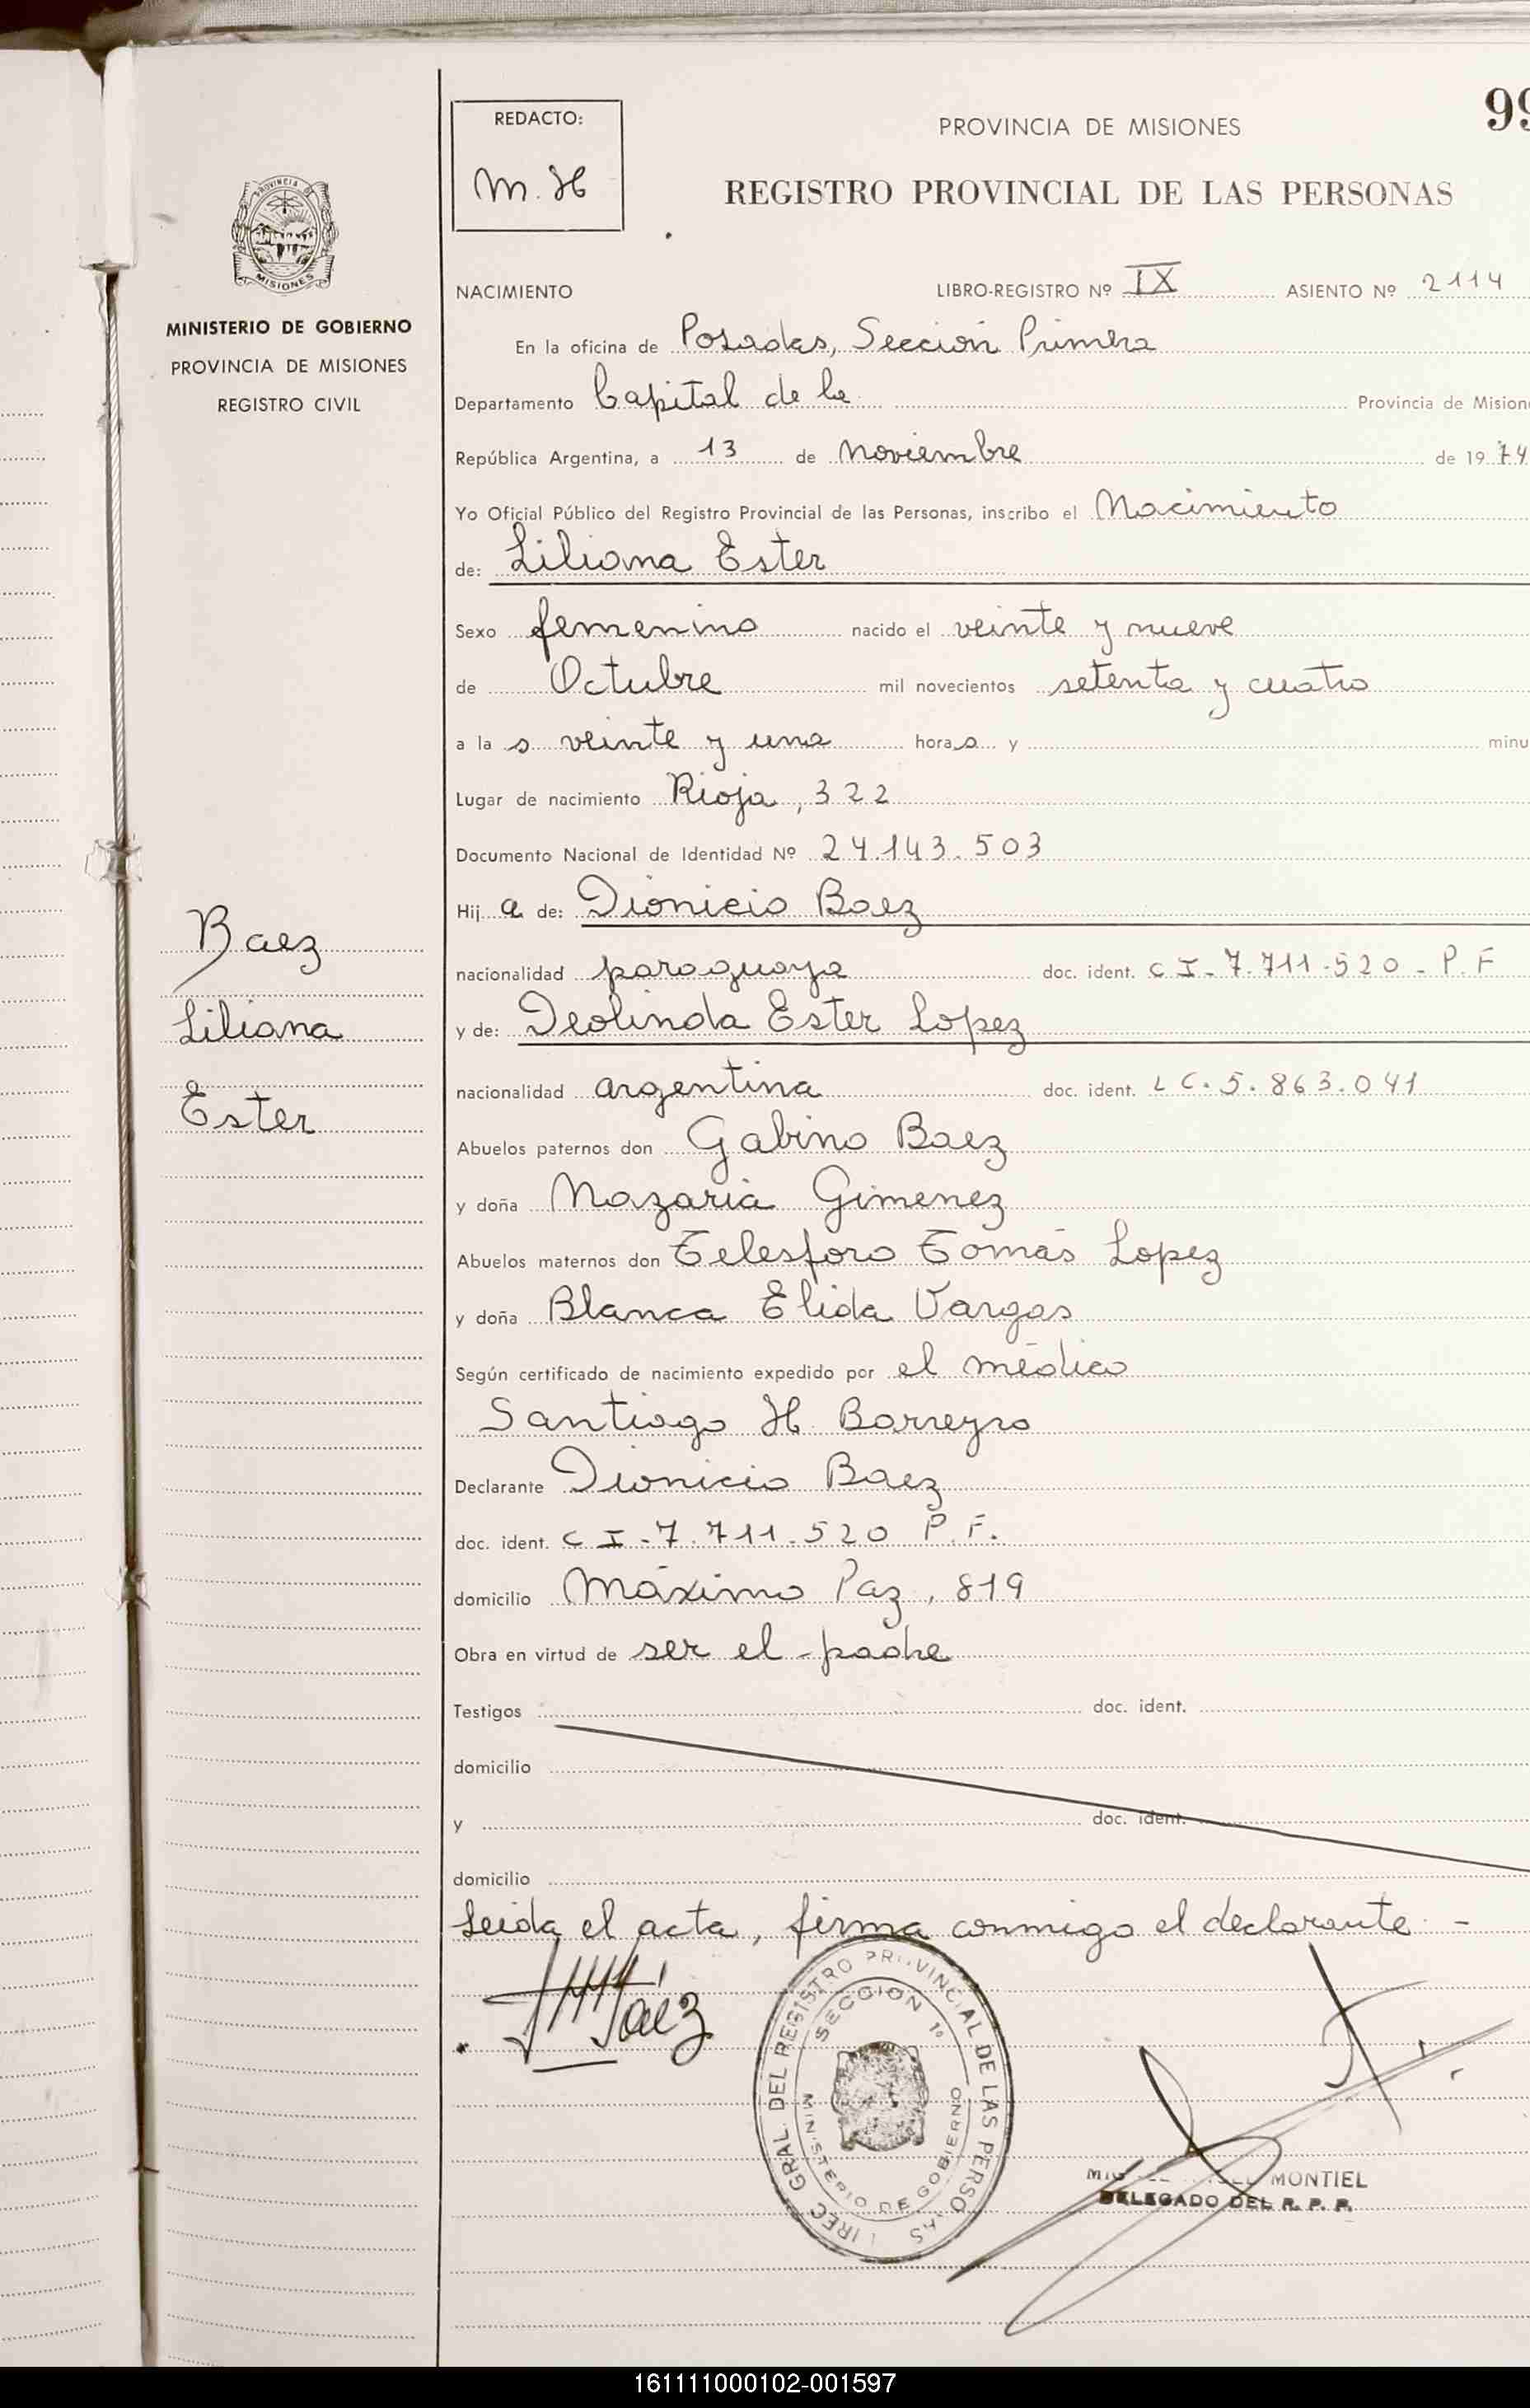 REDACTO:
M. H
PROVINCIA DE MISIONES
99
REGISTRO PROVINCIAL DE LAS PERSONAS
PROVINCIA DE
MISIONES
MINISTERIO DE GOBIERNO
PROVINCIA DE MISIONES
REGISTRO CIVIL
NACIMIENTO LIBRO-REGISTRO Nº IX ASIENTO Nº 2114
En la oficina de Posadas, Sección Primera
Departamento Capital de la Provincia de Mision
República Argentina, a 13 de Noviembre de 1974
Yo Oficial Público del Registro Provincial de las Personas, inscribo el Nacimiento
de: Liliana Ester
Sexo femenino nacido el veinte y nueve
de Octubre mil novecientos setenta y cuatro
a la s veinte y una hora s y minu
Lugar de nacimiento Rioja, 322
Documento Nacional de Identidad Nº 24.143.503
Hij a de: Dionicio Baez
nacionalidad paraguaya doc. ident. C I - 7.711.520 - P. F
y de: Deolinda Ester Lopez
nacionalidad argentina doc. ident. L C. 5.863.041
Abuelos paternos don Gabino Baez
y doña Nazaria Gimenez
Abuelos maternos don Telesforo Tomás Lopez
y doña Blanca Elida Vargas
Según certificado de nacimiento expedido por el médico
Santiago H. Barreyro
Declarante Dionicio Baez
doc. ident. C I - 7.711.520 P. F.
domicilio Máximo Paz, 819
Obra en virtud de ser el padre
Testigos doc. ident.
domicilio
y doc. ident.
domicilio
Leida el acta, firma conmigo el declarante. -
Baez
Liliana
Ester
Báez
DIREC GRAL DEL REGISTRO PROVINCIAL DE LAS PERSONAS
SECCION 1º
MINISTERIO DE GOBIERNO
MONTIEL
DELEGADO DEL R. P. P.
161111000102-001597